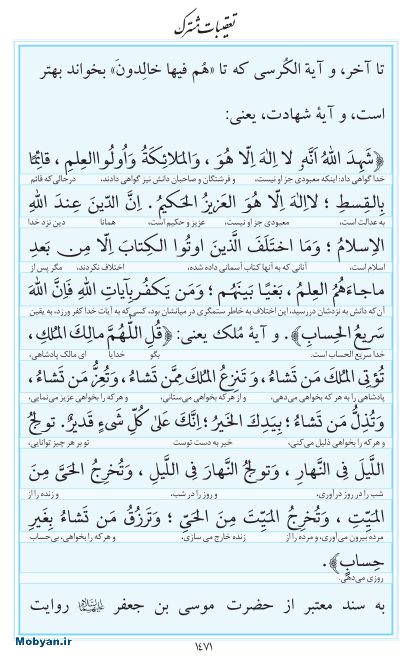 تعقیبات مشترک
تا آخر، و آیة الکُرسی که تا «هُم فیها خالِدونَ» بخواند بهتر
است، و آیهٔ شهادت، یعنی:
﴿شَهِدَ اللهُ اَنَّهُ لا اِلٰهَ اِلّا هُوَ ، وَالمَلائِکَةُ وَاُولُوا العِلمِ ، قائِمًا
خدا گواهی داد: اینکه معبودی جز او نیست، و فرشتگان و صاحبان دانش نیز گواهی دادند، در حالی که قائم
بِالقِسطِ ؛ لااِلٰهَ اِلّا هُوَ العَزیزُ الحَکیمُ . اِنَّ الدّینَ عِندَ اللهِ
به عدالت است، معبودی جز او نیست، عزیز و حکیم است، همانا دین نزد خدا
الاِسلامُ ؛ وَمَا اختَلَفَ الَّذینَ اوتُوا الکِتابَ اِلّا مِن بَعدِ
اسلام است، آنانی که به آنها کتاب آسمانی داده شده، اختلاف نکردند، مگر پس از
ماجاءَهُمُ العِلمُ ، بَغیًا بَینَهُم ؛ وَمَن یَکفُر بِآیاتِ اللهِ فَاِنَّ اللهَ
آن که دانش به نزدشان دررسید، این اختلاف به خاطر ستمگری در میانشان بود، کسی که به آیات خدا کفر ورزد، به یقین
سَریعُ الحِسابِ﴾. و آیهٔ مُلک یعنی: ﴿قُلِ اللّٰهُمَّ مالِکَ المُلکِ ،
خدا سریع الحساب است. بگو خدایا ای مالک پادشاهی،
تُؤتِی المُلکَ مَن تَشاءُ، وَ تَنزِعُ المُلکَ مِمَّن تَشاءُ، وَتُعِزُّ مَن تَشاءُ،
پادشاهی را به هر که بخواهی می‌دهی، و از هر که بخواهی می‌ستانی، و هر که را بخواهی عزیز می‌نمایی،
وَتُذِلُّ مَن تَشاءُ ؛ بِیَدِکَ الخَیرُ ؛ اِنَّکَ عَلیٰ کُلِّ شَیءٍ قَدیرٌ. تولِجُ
و هر که را بخواهی ذلیل می‌کنی، خیر به دست توست تو بر هر چیز توانایی،
اللَّیلَ فِی النَّهارِ ، وَتولِجُ النَّهارَ فِی اللَّیلِ ، وَتُخرِجُ الحَیَّ مِنَ
شب را در روز درآوری، و روز را در شب، و زنده را از
المَیِّتِ ، وَتُخرِجُ المَیِّتَ مِنَ الحَیِّ ؛ وَتَرزُقُ مَن تَشاءُ بِغَیرِ
مرده بیرون می‌آوری، و مرده را از زنده خارج می سازی، و هر که را بخواهی، بی‌حساب
حِسابٍ﴾.
روزی می‌دهی.
به سند معتبر از حضرت موسی بن جعفر علیهماالسلام روایت
Mobyan.ir
۱۴۷۱